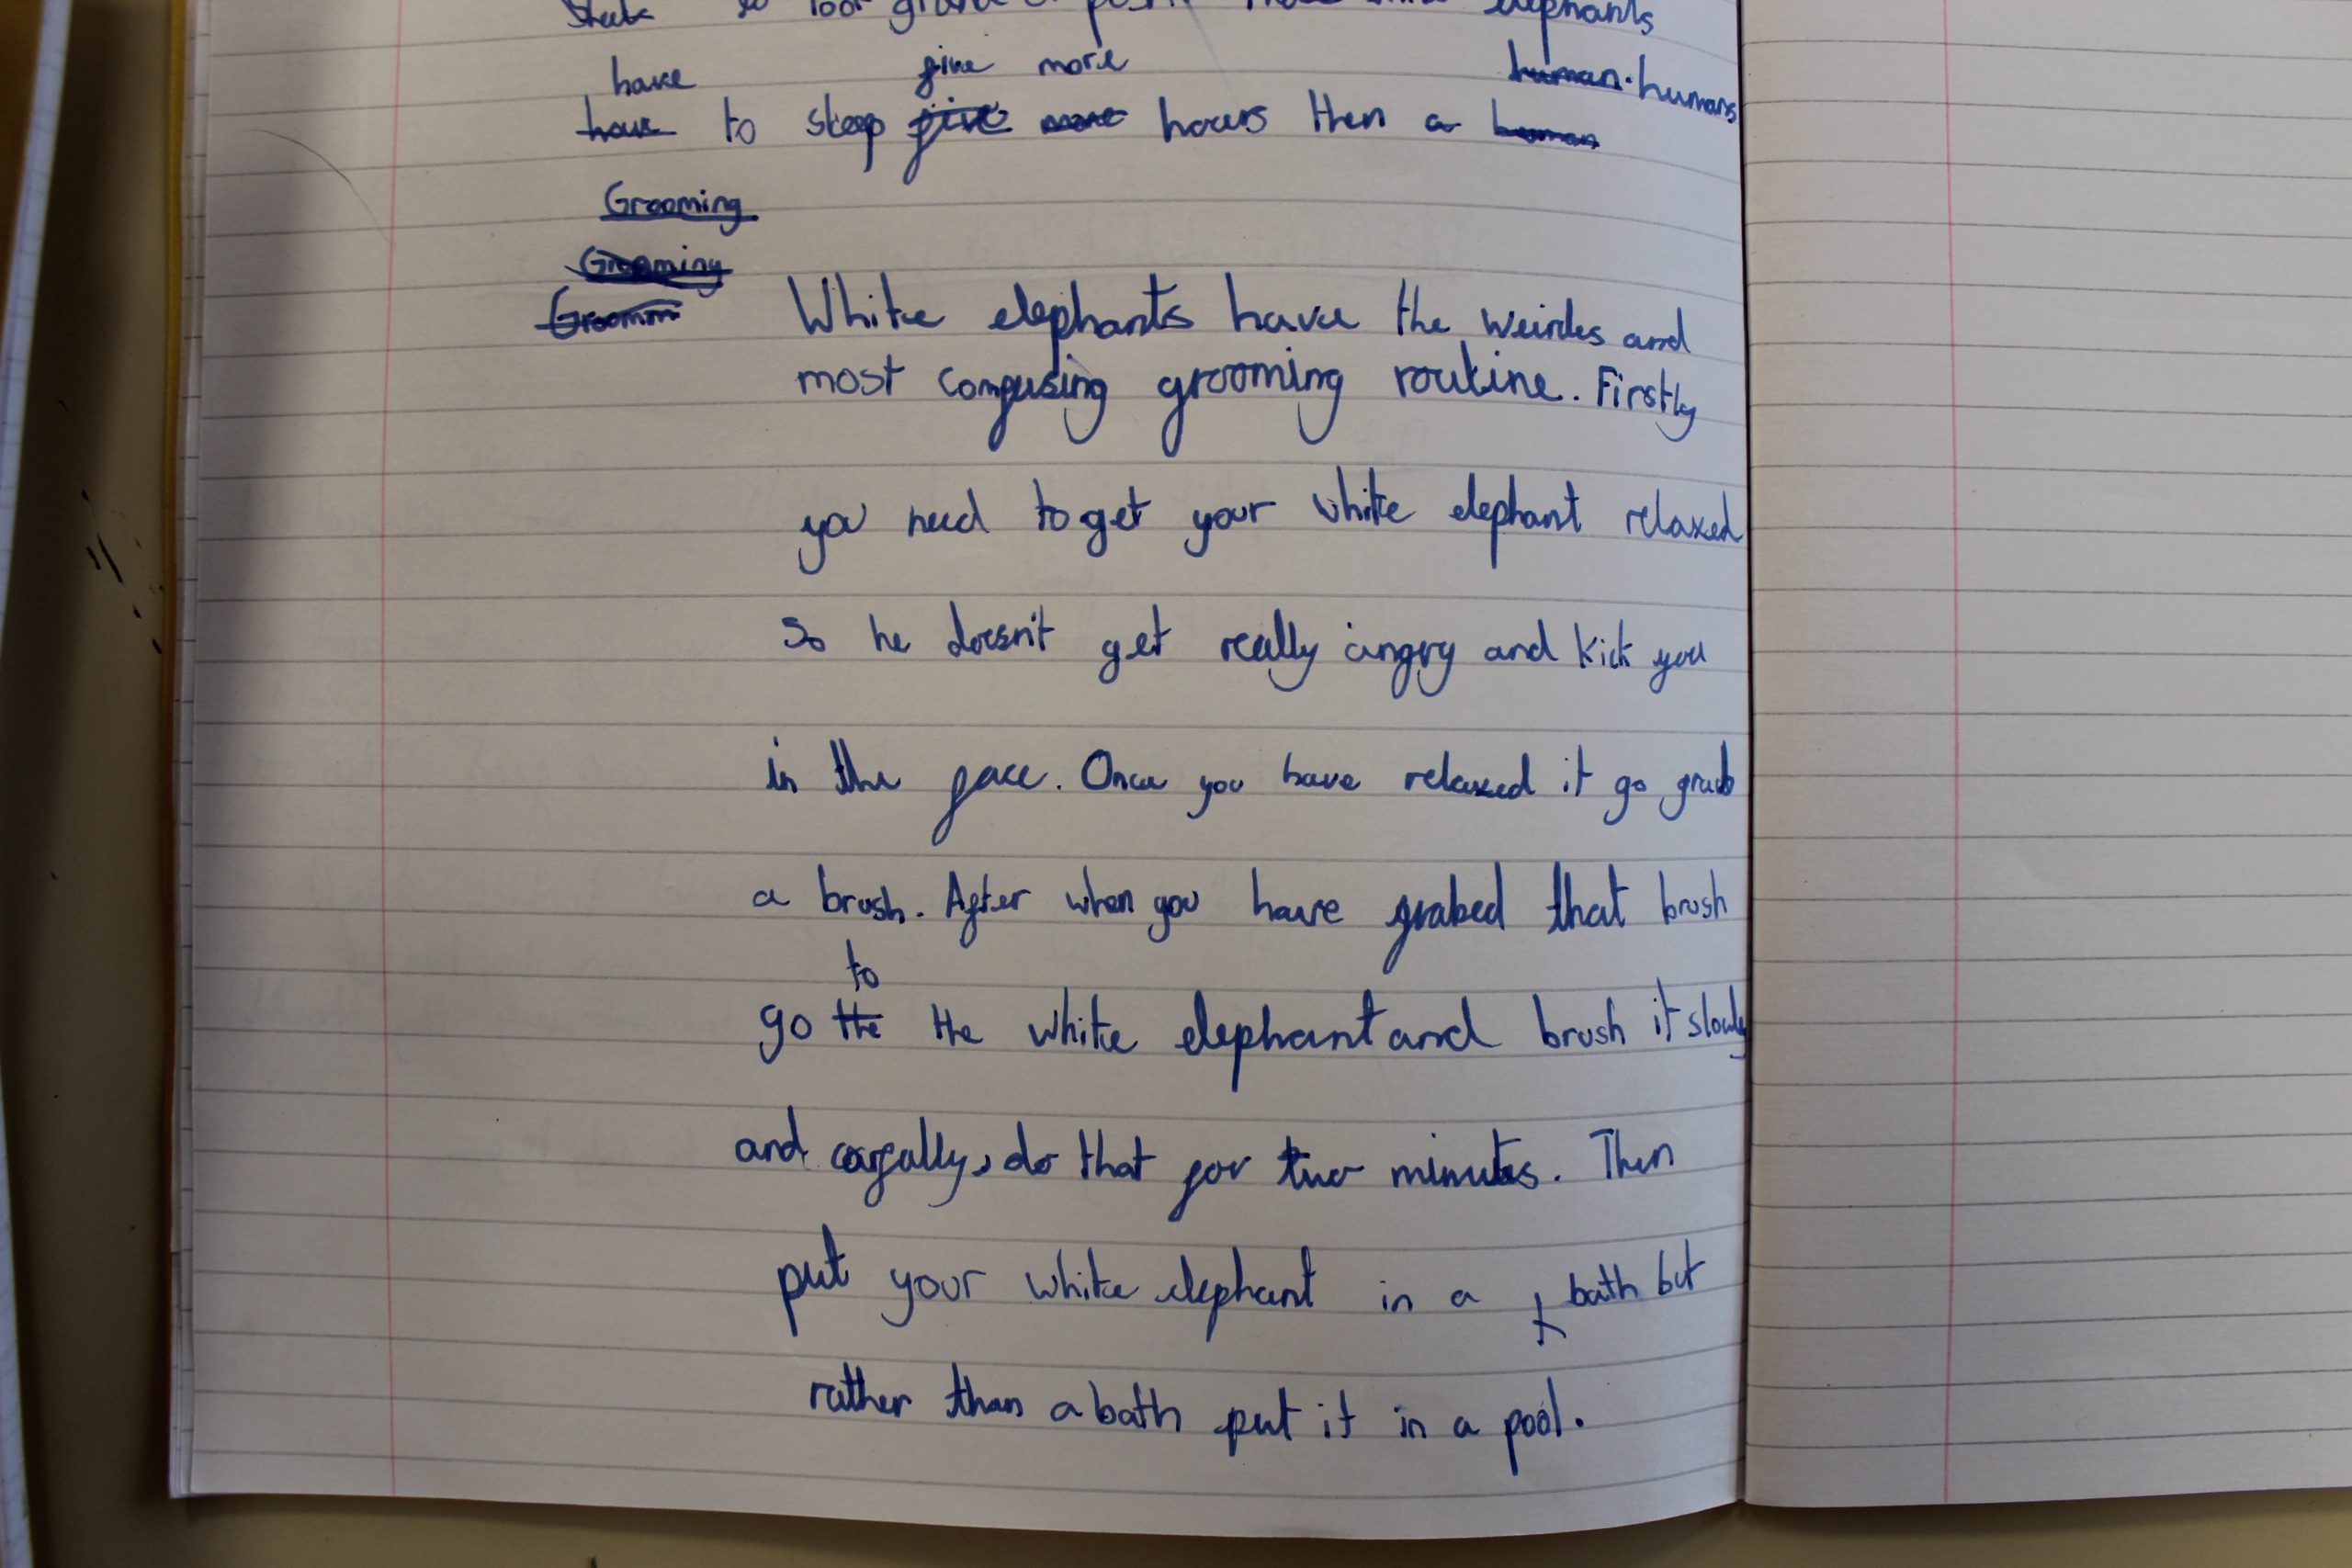 elephants
have five more human. humans
have to sleep five more hours then a human
Grooming
Grooming
Groomin
White elephants have the weirdes and
most confusing grooming routine. Firstly
you need to get your white elephant relaxed
so he doesn't get really angry and kick you
in the face. Once you have relaxed it go grab
a brush. After when you have grabed that brush
to
go the the white elephant and brush it slowly
and carfally, do that for two minutes. Then
put your white elephant in a bath but
rather than a bath put it in a pool.